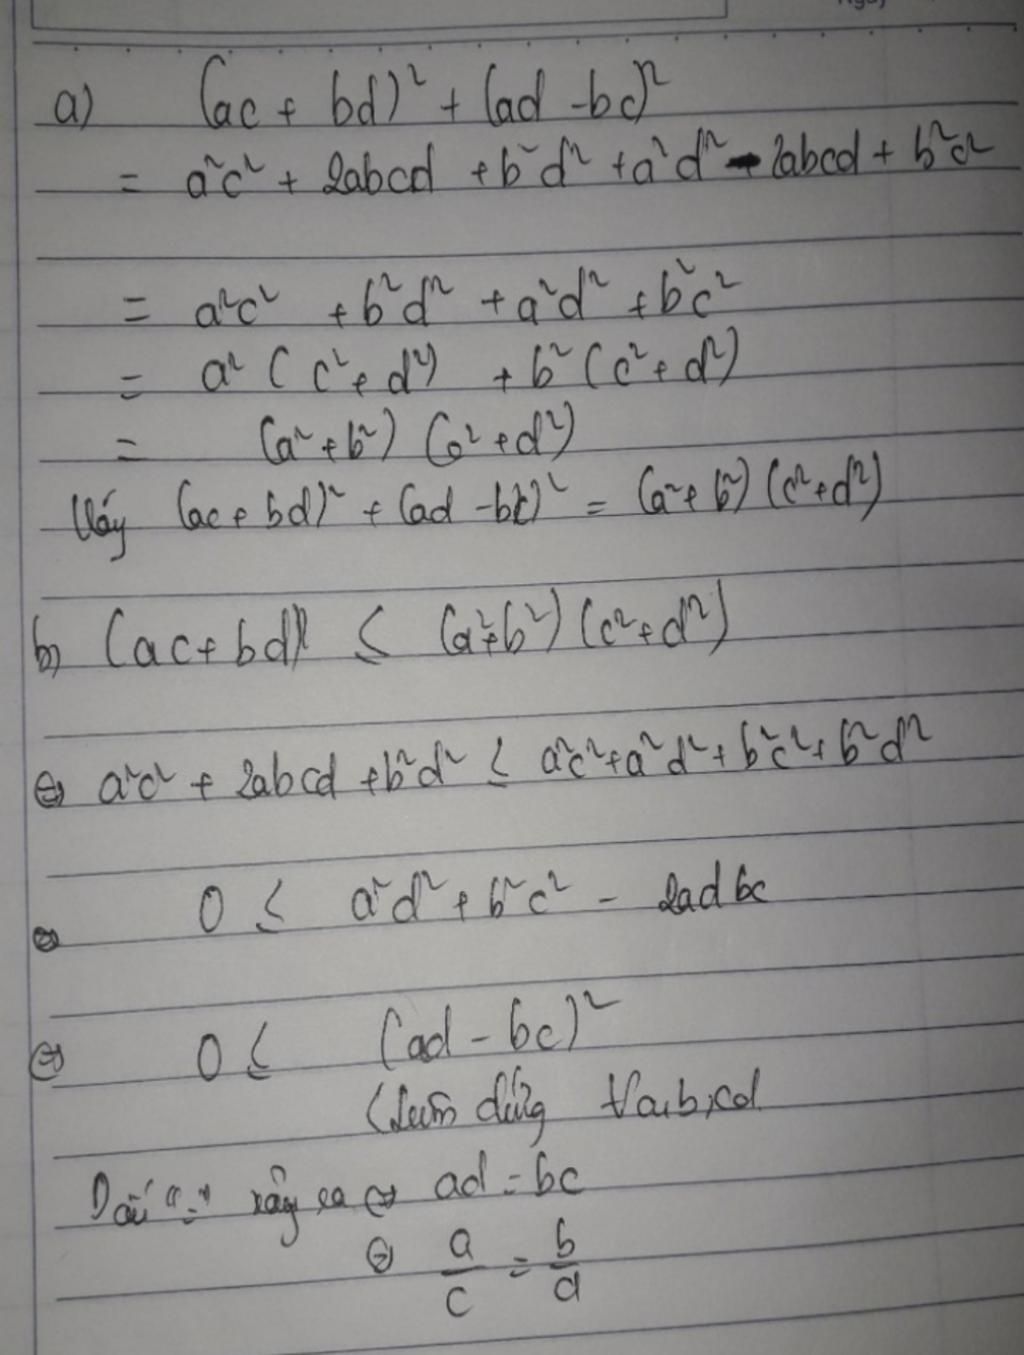 a) (ac + bd)² + (ad - bc)²
= a²c² + 2abcd + b²d² + a²d² - 2abcd + b²c²
= a²c² + b²d² + a²d² + b²c²
= a² (c² + d²) + b² (c² + d²)
= (a² + b²) (c² + d²)
Vậy (ac + bd)² + (ad - bc)² = (a² + b²) (c² + d²)
b) (ac + bd)² ≤ (a² + b²) (c² + d²)
⇔ a²c² + 2abcd + b²d² ≤ a²c² + a²d² + b²c² + b²d²
⇔ 0 ≤ a²d² + b²c² - 2adbc
⇔ 0 ≤ (ad - bc)²
(luôn đúng ∀a,b,c,d
Dấu "=" xảy ra ⇔ ad = bc
⇔ a/c = b/d